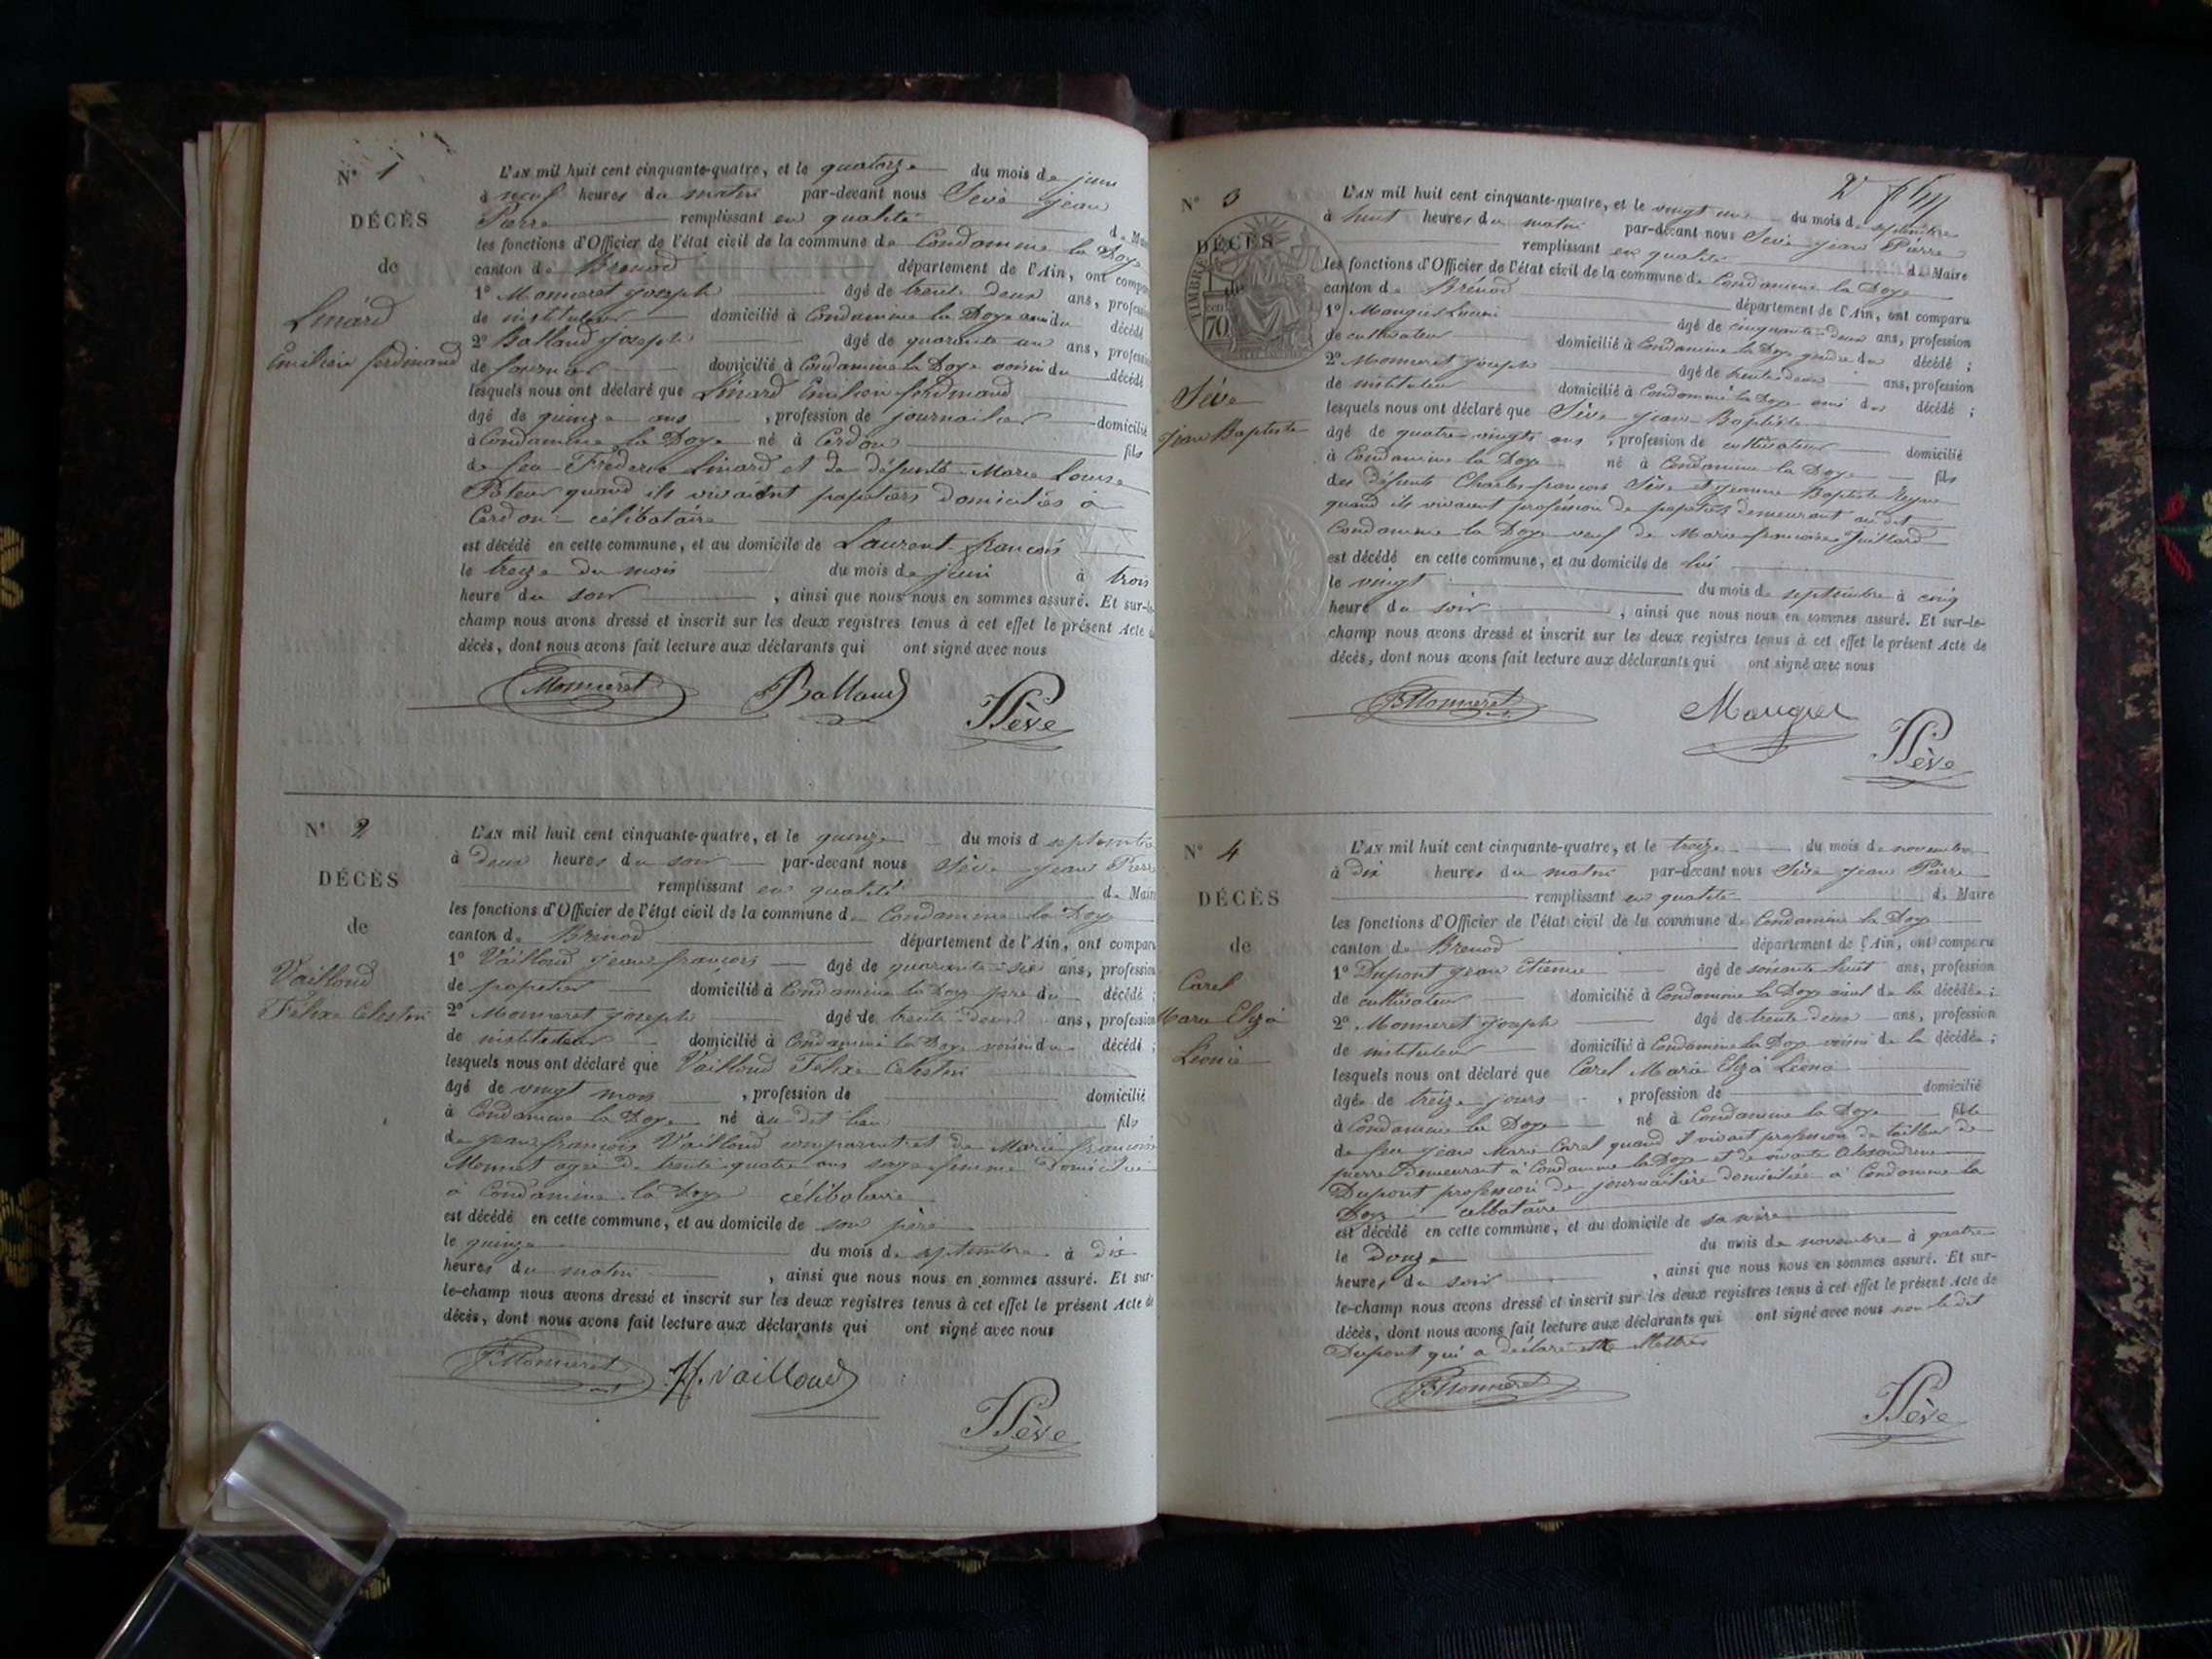 N° 1
DÉCÈS
de
Linard
Emilien ferdinand
L'AN mil huit cent cinquante-quatre, et le quatorze du mois de juin
à neuf heures du matin par-devant nous Sève jean
Pierre remplissant en qualité de Maire
les fonctions d'Officier de l'état civil de la commune de Condamine la Doye
canton de Brenod département de l'Ain, ont comparu
1° Monneret joseph âgé de trente deux ans, profession
de instituteur domicilié à Condamine la Doye ami du décédé
2° Balland joseph âgé de quarante un ans, profession
de domicilié à Condamine la Doye voisin du décédé
lesquels nous ont déclaré que Linard Emilien ferdinand
âgé de quinze ans, profession de journalier domicilié
à Condamine la Doye né à Cerdon fils
de feu Frederic Linard et de défunte Marie Louise
quand ils vivaient papetiers domiciliés à
Cerdon célibataire
est décédé en cette commune, et au domicile de Laurent françois
le treize du mois du mois de juin à trois
heure du soir, ainsi que nous nous en sommes assuré. Et sur-le-
champ nous avons dressé et inscrit sur les deux registres tenus à cet effet le présent Acte de
décès, dont nous avons fait lecture aux déclarants qui ont signé avec nous
Monneret Balland Sève
N° 2
DÉCÈS
de
Vailloud
Félix Celestin
L'AN mil huit cent cinquante-quatre, et le quinze du mois d septembre
à deux heures du soir par-devant nous Sève jean Pierre
remplissant en qualité de Maire
les fonctions d'Officier de l'état civil de la commune de Condamine la Doye
canton de Brenod département de l'Ain, ont comparu
1° Vailloud jean françois âgé de quarante six ans, profession
de papetier domicilié à Condamine la Doye père du décédé ;
2° Monneret joseph âgé de trente deux ans, profession
de instituteur domicilié à Condamine la Doye voisin du décédé ;
lesquels nous ont déclaré que Vailloud Félix Celestin
âgé de vingt mois, profession de domicilié
à Condamine la Doye né au dit lieu fils
de jean françois Vailloud comparant et de Marie françoise
agée de trente quatre ans sage femme domiciliée
à Condamine la Doye célibataire
est décédé en cette commune, et au domicile de son père
le quinze du mois de septembre à dix
heures du matin, ainsi que nous nous en sommes assuré. Et sur-
le-champ nous avons dressé et inscrit sur les deux registres tenus à cet effet le présent Acte de
décès, dont nous avons fait lecture aux déclarants qui ont signé avec nous
Monneret Vailloud
Sève
N° 3
DÉCÈS
de
TIMBRE
70
Sève
Jean Baptiste
L'AN mil huit cent cinquante-quatre, et le vingt un du mois de septembre
à huit heures du matin par-devant nous Sève jean Pierre
remplissant en qualité de Maire
les fonctions d'Officier de l'état civil de la commune de Condamine la Doye
canton de Brénod département de l'Ain, ont comparu
1° âgé de cinquante deux ans, profession
de cultivateur domicilié à Condamine la Doye gendre du décédé ;
2° Monneret joseph âgé de trente deux ans, profession
de instituteur domicilié à Condamine la Doye ami du décédé ;
lesquels nous ont déclaré que Sève jean Baptiste
âgé de quatre-vingts ans, profession de cultivateur domicilié
à Condamine la Doye né à Condamine la Doye fils
des défunts Charles françois Sève et jeanne Baptiste
quand ils vivaient profession de papetiers demeurant au dit
Condamine la Doye veuf de Marie françoise Juillard
est décédé en cette commune, et au domicile de lui
le vingt du mois de septembre à cinq
heure du soir, ainsi que nous nous en sommes assuré. Et sur-le-
champ nous avons dressé et inscrit sur les deux registres tenus à cet effet le présent Acte de
décès, dont nous avons fait lecture aux déclarants qui ont signé avec nous
Monneret
Sève
N° 4
DÉCÈS
de
Carel
Marie Eliza
Léonie
L'AN mil huit cent cinquante-quatre, et le treize du mois de novembre
à dix heures du matin par-devant nous Sève jean Pierre
remplissant en qualité de Maire
les fonctions d'Officier de l'état civil de la commune de Condamine la Doye
canton de Brenod département de l'Ain, ont comparu
1° Dupont jean Etienne âgé de soixante huit ans, profession
de cultivateur domicilié à Condamine la Doye aieul de la décédée ;
2° Monneret joseph âgé de trente deux ans, profession
de instituteur domicilié à Condamine la Doye voisin de la décédée ;
lesquels nous ont déclaré que Carel Maria Eliza Léonie
âgée de treize jours, profession de domicilié
à Condamine la Doye né à Condamine la Doye fille
de feu jean Marie Carel quand il vivait profession de tailleur de
pierre demeurant à Condamine la Doye et de vivante Alexandrine
Dupont profession de journalière domiciliée à Condamine la
Doye célibataire
est décédé en cette commune, et au domicile de sa mère
le douze du mois de novembre à quatre
heures du soir, ainsi que nous nous en sommes assuré. Et sur-
le-champ nous avons dressé et inscrit sur les deux registres tenus à cet effet le présent Acte de
décès, dont nous avons fait lecture aux déclarants qui ont signé avec nous non le dit
Dupont qui a déclaré être illettré
Monneret
Sève